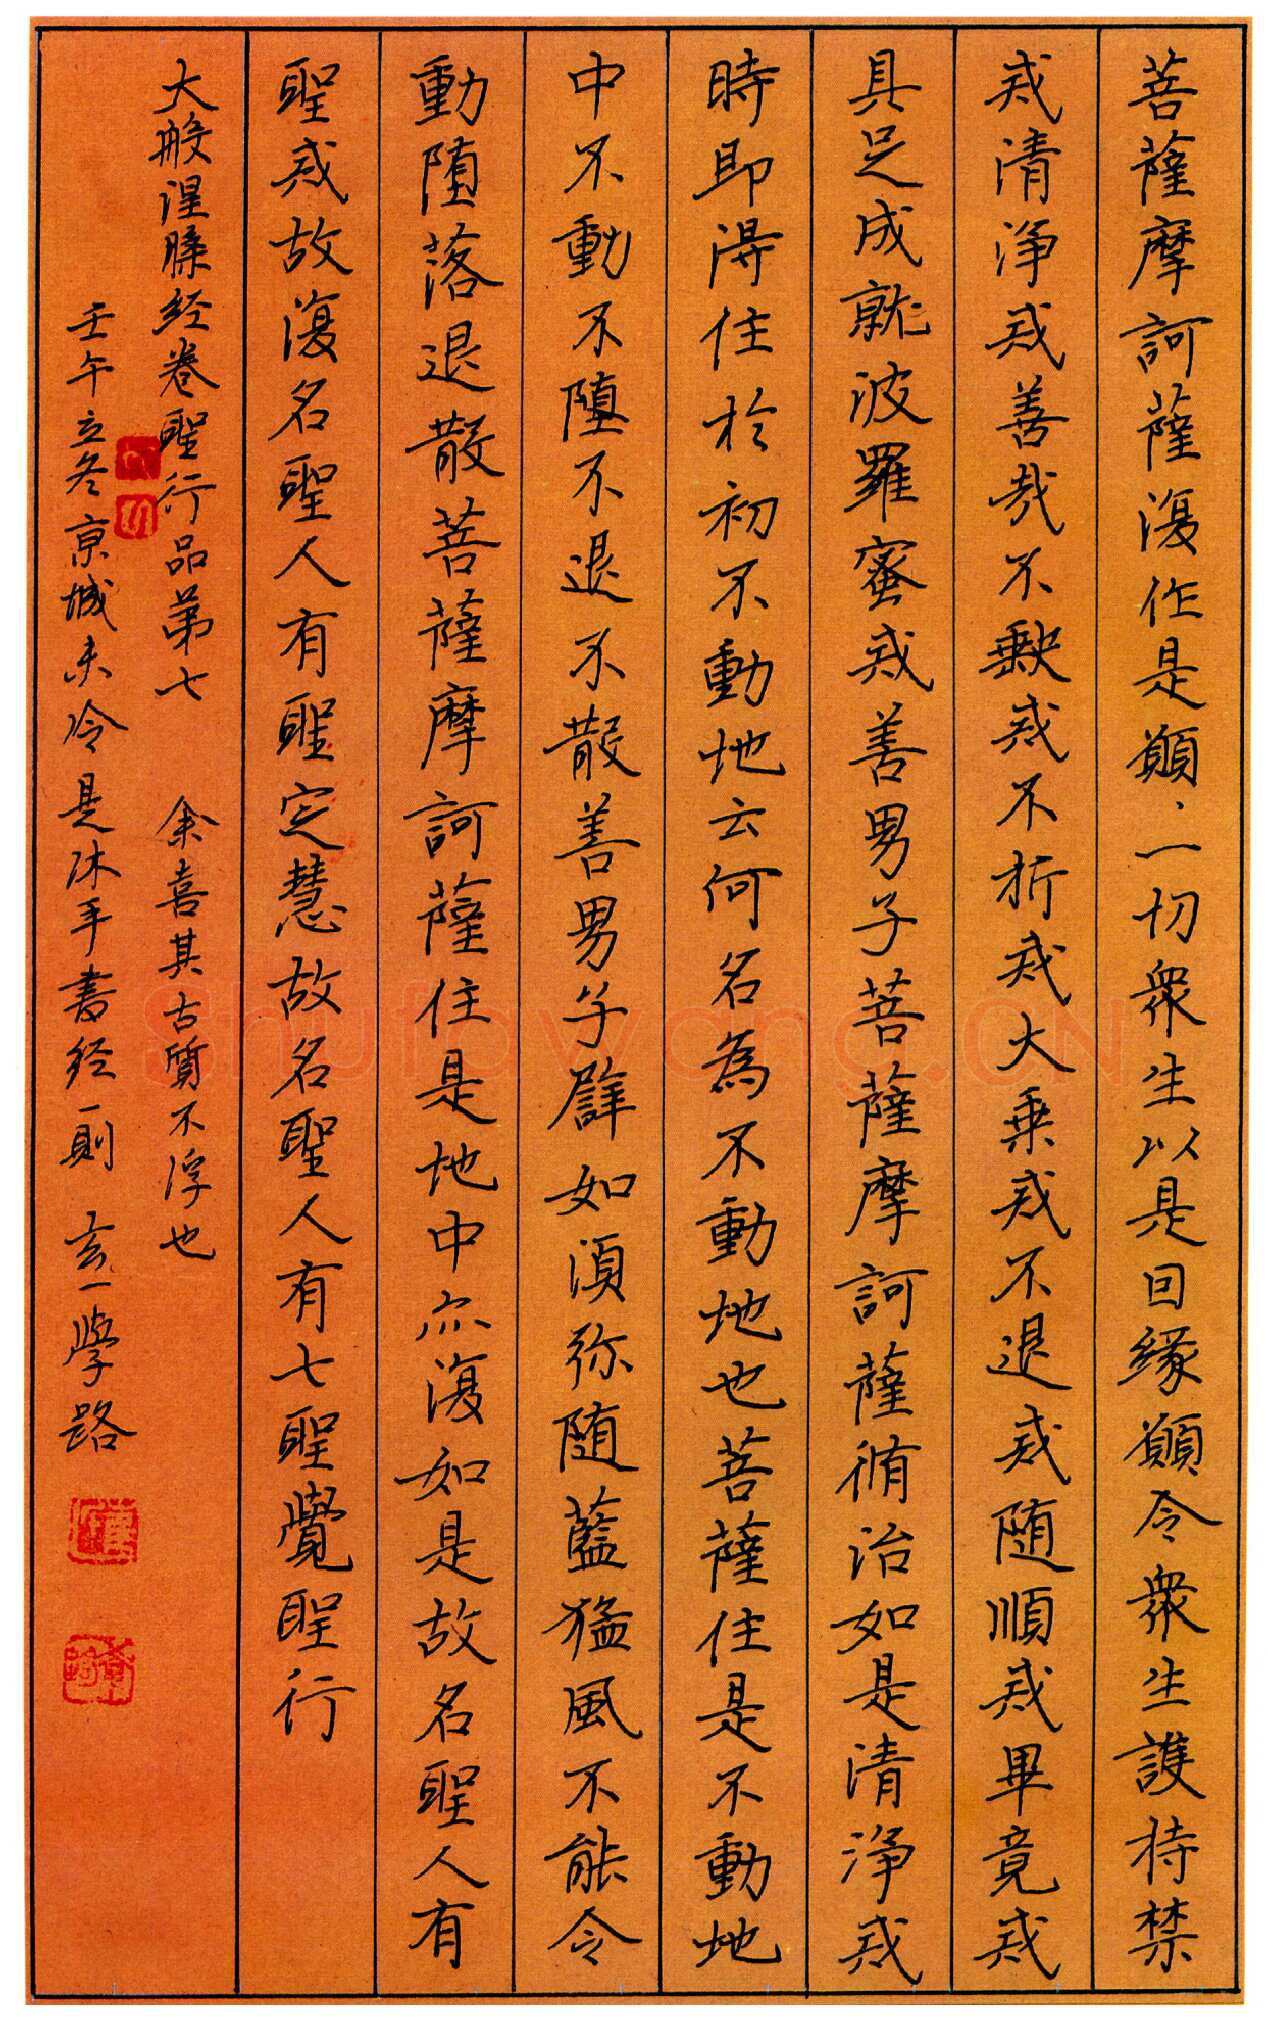 菩薩摩訶薩復作是願、一切衆生以是因緣願令衆生護持禁
戒清淨戒善哉不缺戒不折戒大乗戒不退戒随順戒畢竟戒
具足成就波羅蜜戒善男子菩薩摩訶薩脩治如是清淨戒
時即得住於初不動地云何名為不動地也菩薩住是不動地
中不動不墮不退不散善男子譬如須弥随藍猛風不能令
動墮落退散菩薩摩訶薩住是地中亦復如是故名聖人有
聖戒故復名聖人有聖定慧故名聖人有七聖覺聖行
大般涅槃经卷聖行品第七 余喜其古質不浮也
壬午立冬京城未冷是沐手書经一則 玄一學路
Shufawang.CN